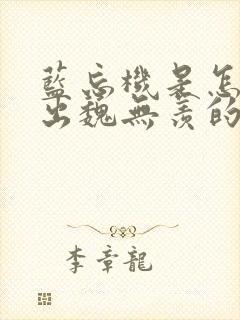 藍忘機是怎
出魏無羨的
李章龍